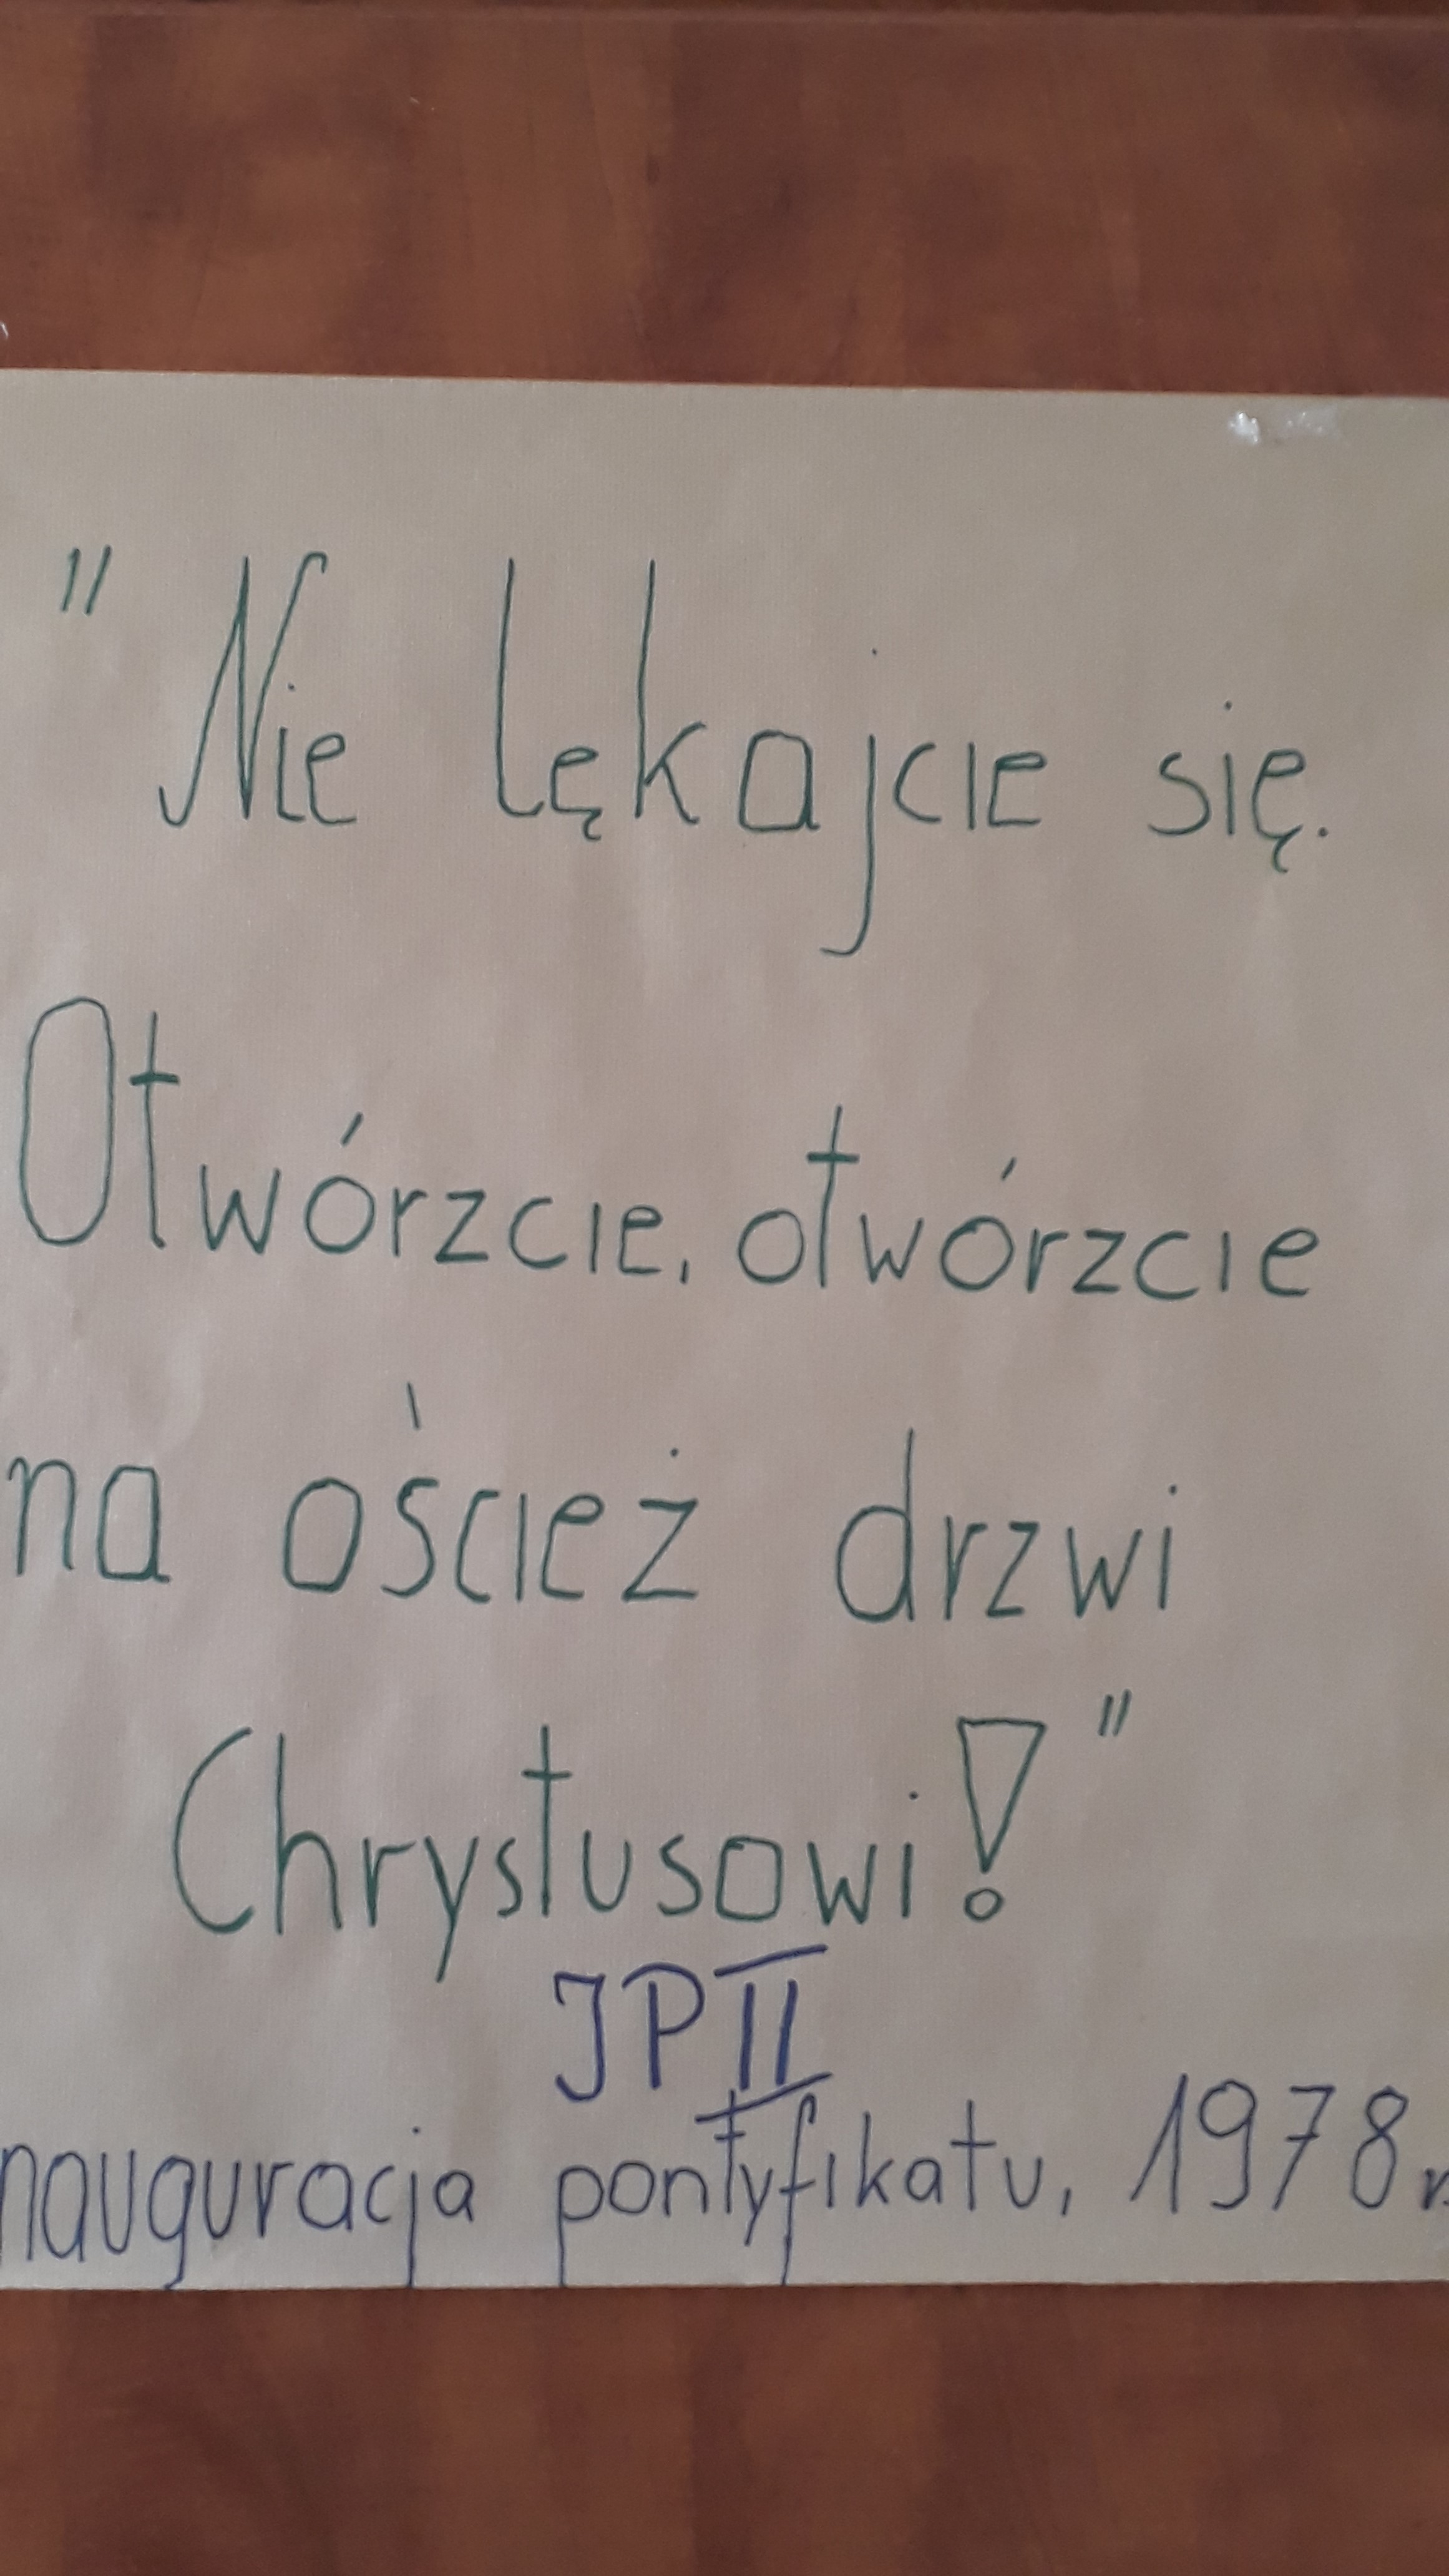 "Nie lękajcie się.
Otwórzcie, otwórzcie
na oścież drzwi
Chrystusowi!"
JPII
nauguracja pontyfikatu, 1978r